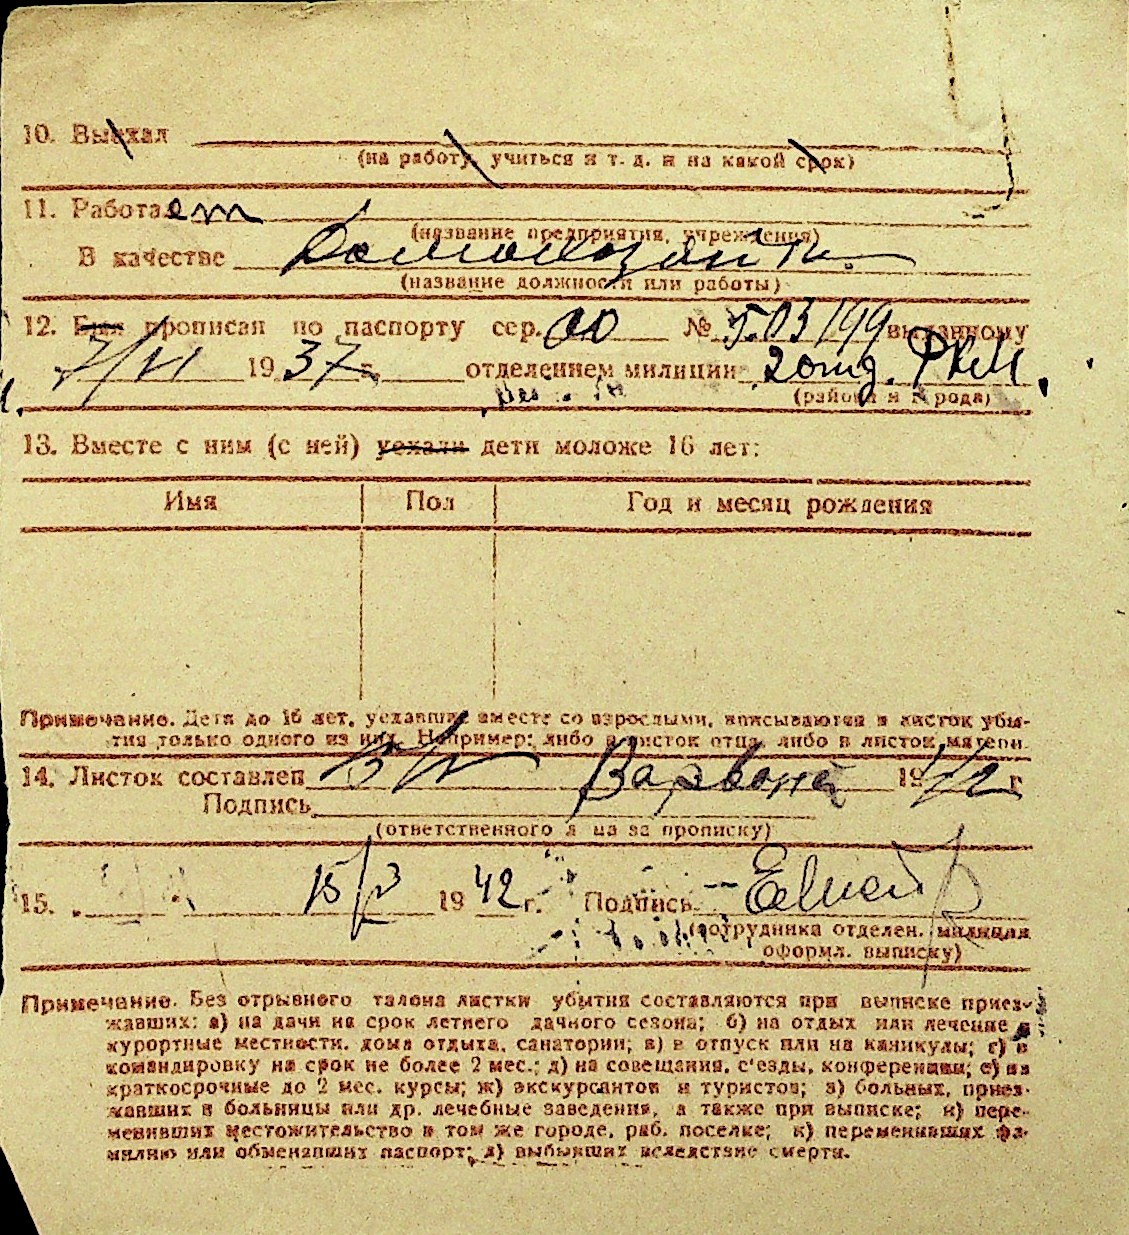 10. Выехал
(на работу, учиться и т. д. и на какой срок)
11. Работает
(название предприятия, учреждения)
В качестве
(название должности или работы)
12. Был прописан по паспорту сер. № выданному
7/VI 1937 г. отделением милиции 2 отд. РКМ
(района и города)
13. Вместе с ним (с ней) уехали дети моложе 16 лет:
Имя Пол Год и месяц рождения
Примечание. Дети до 16 лет, уехавшие вместе со взрослыми, вписываются в листок убы-
тия только одного из них. Например: либо в листок отца, либо в листок матери.
14. Листок составлен 19 г
Подпись
(ответственного лица за прописку)
15. 15/3 1942 г. Подпись
(сотрудника отделен. милиции
оформл. выписку)
Примечание. Без отрывного талона листки убытия составляются при выписке приез-
жавших: а) на дачи на срок летнего дачного сезона; б) на отдых или лечение в
курортные местности, дома отдыха, санатории; в) в отпуск или на каникулы; г) в
командировку на срок не более 2 мес.; д) на совещания, с'езды, конференции; е) на
краткосрочные до 2 мес. курсы; ж) экскурсантов и туристов; з) больных, приез-
жавших в больницы или др. лечебные заведения, а также при выписке; и) пере-
менивших местожительство в том же городе, раб. поселке; к) переменивших фа-
милию или обменявших паспорт; л) выбывших вследствие смерти.